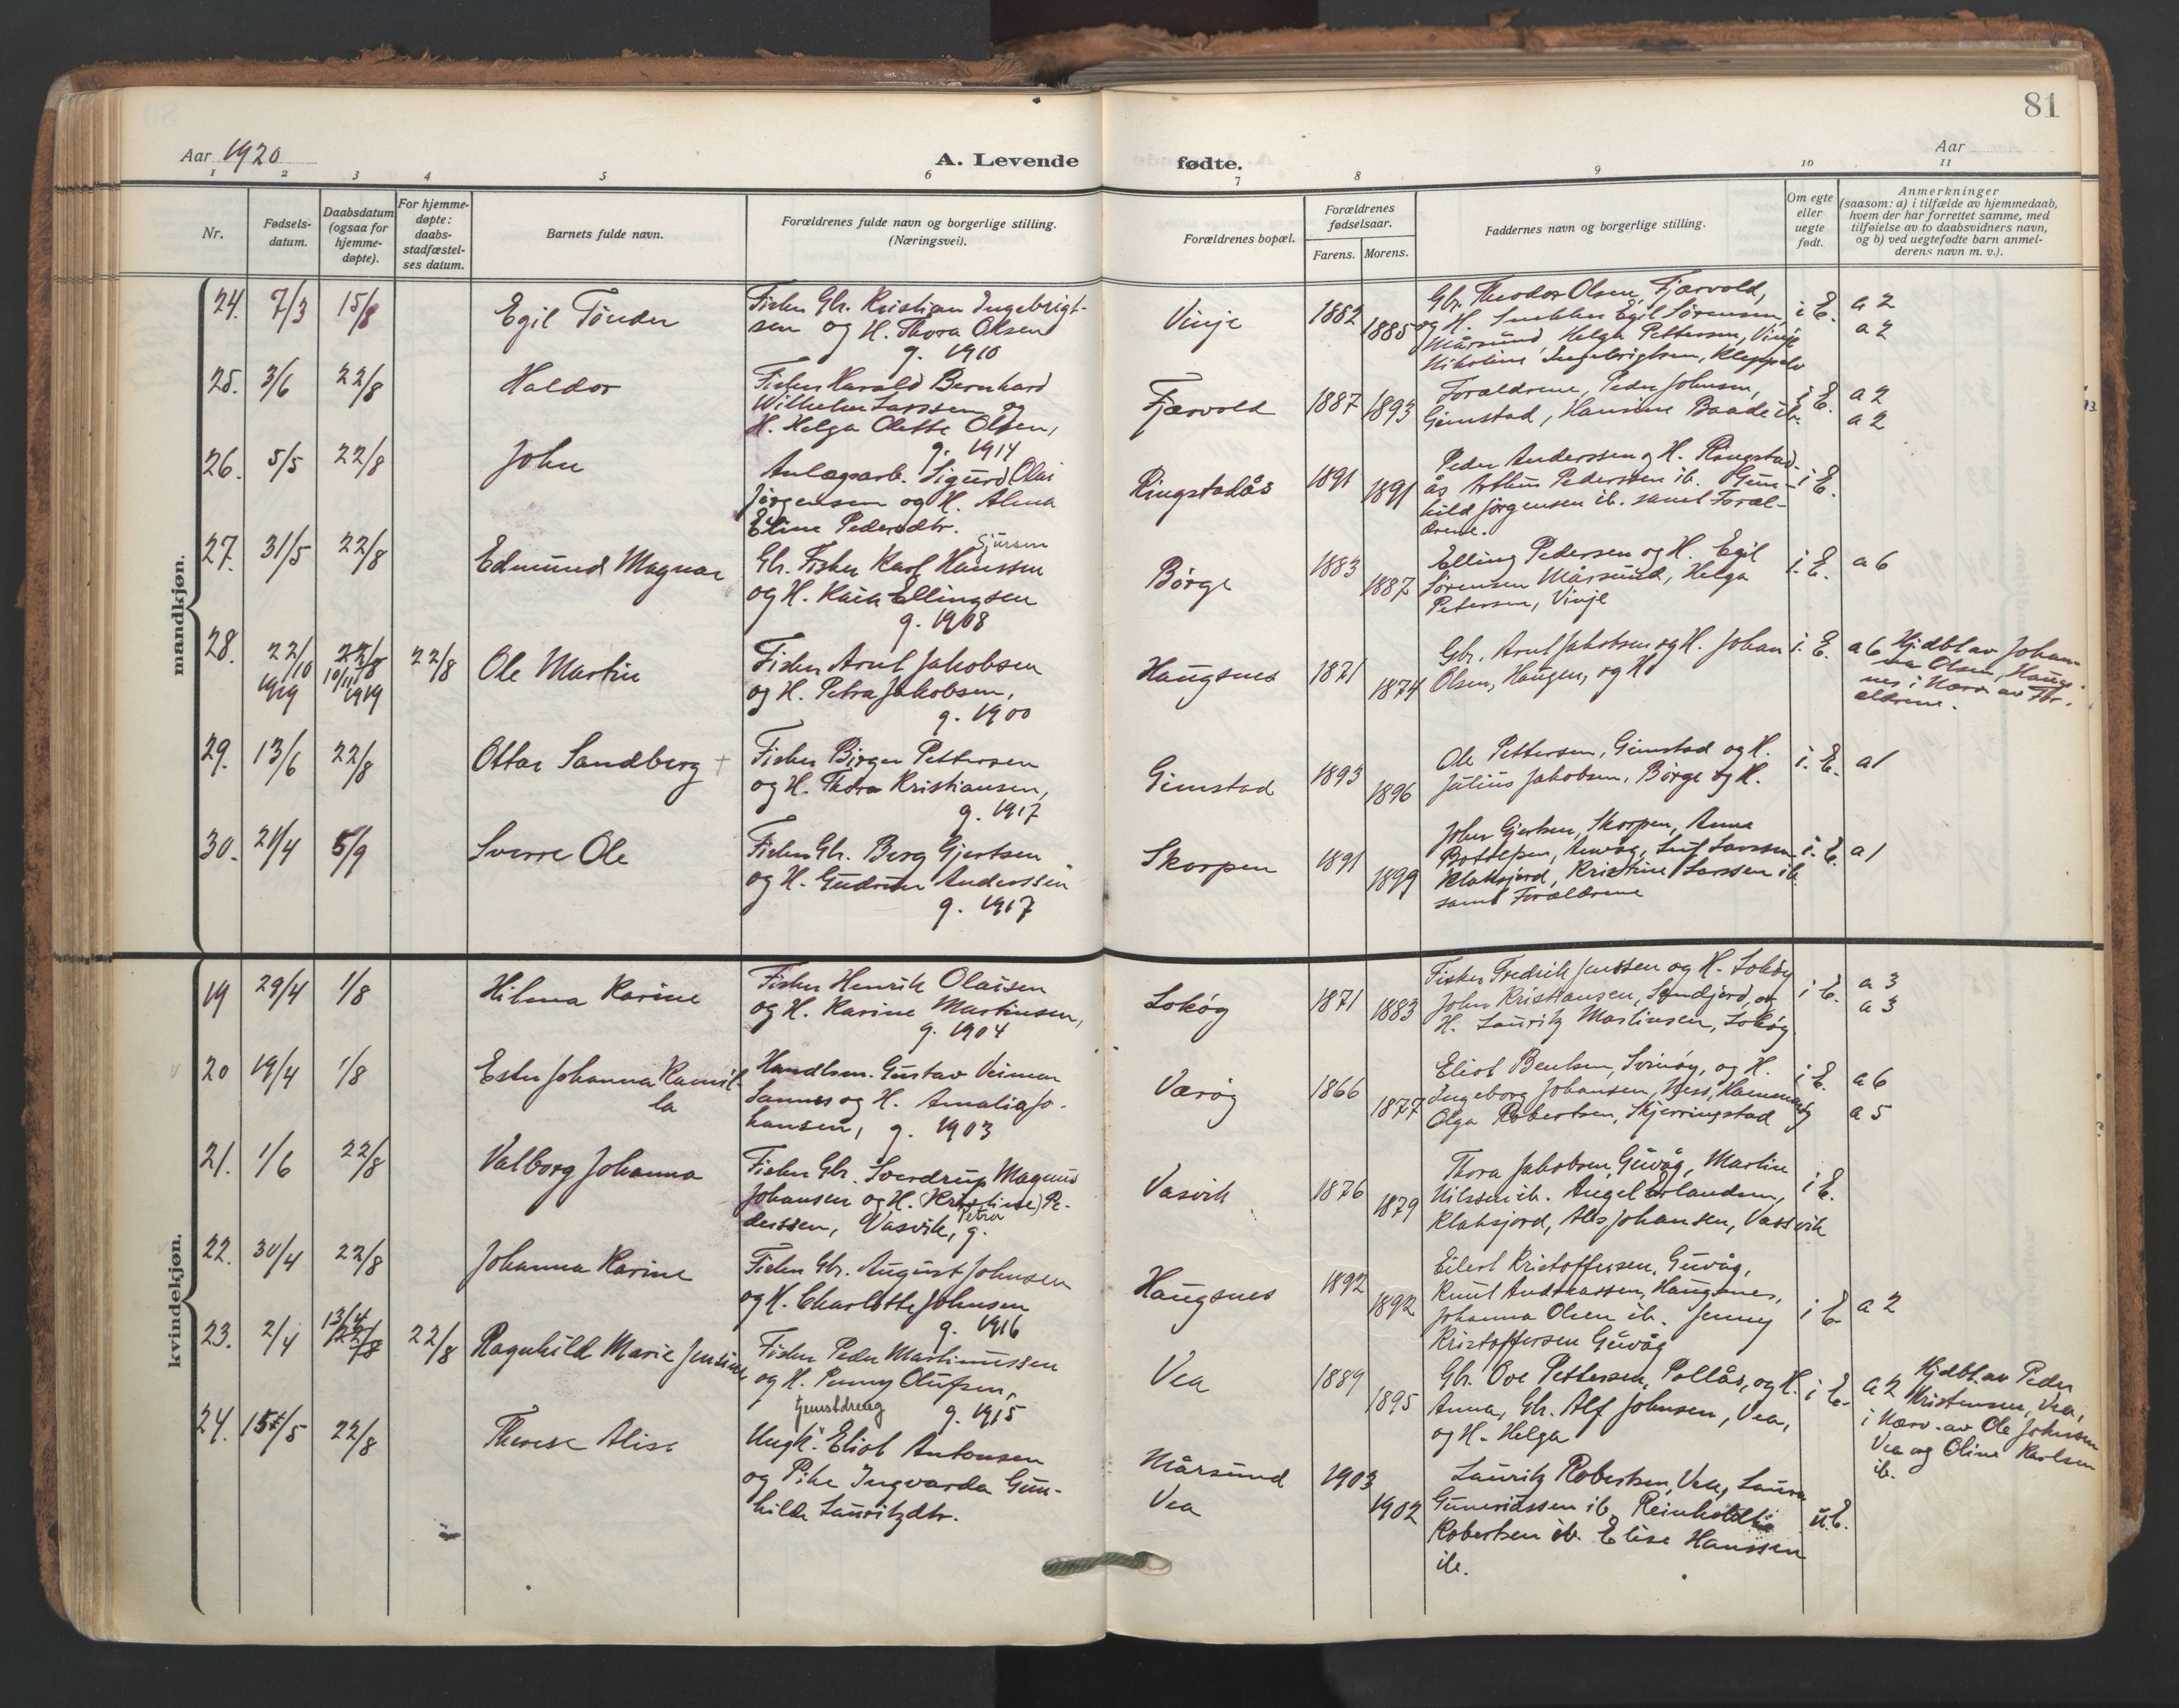 81
Aar 1920
A. Levende
fødte.
Aar
1 2 3 4 5 6 7 8 9 10 11
Nr.
Fødsels-
datum.
Daabsdatum
(ogsaa for
hjemme-
døpte).
For hjemme-
døpte:
daabs-
stadfæstel-
ses datum.
Barnets fulde navn.
Forældrenes fulde navn og borgerlige stilling.
(Næringsvei).
Forældrenes bopæl.
Forældrenes
fødselsaar.
Farens. Morens.
Faddernes navn og borgerlige stilling.
Om egte
eller
uegte
født.
Anmerkninger
(saasom: a) i tilfælde av hjemmedaab,
hvem der har forrettet samme, med
tilføielse av to daabsvidners navn,
og b) ved uegtefødte barn anmel-
derens navn m. v.).
mandkjøn.
24. 7/3 15/8
Egil Tönder
Fisker Gbr. Kristian Ingebrigt-
sen og H. Thora Olsen
g. 1910
Vinje
1882
1885
Gbr. Theodor Olsen, Fjærvold,
og H. Snekker Egil Sörensen,
Mårsund, Helga Pettersen, Vinje
Nikoline Ingebrigtsen, Kleppelv
i E.
a 2
a 2
25. 3/6 22/8
Haldor
Fisker Harald Bernhard
Wilhelm Larssen og
H. Helga Olette Olsen,
g. 1914
Fjærvold
1887 1893
Forældrene, Peder Johnsen,
Gimstad, Hansine Baade ib.
i E.
a 2
a 2
26. 5/5 22/8
John
Anlægsarb. Sigurd Olai
Jörgensen og H. Alma
Eline Pedersdtr.
Ringstadås
1891
1891
Peder Anderssen og H. Ringstad-
ås Arthur Pederssen ib. Gun-
hild Jörgensen ib. samt Foræl-
drene.
i E.
27. 31/5 22/8
Edmund Magnar
Sjursen
Gbr. Fisker Karl Hanssen
og H. Kaia Ellingsen
g. 1908
Börge
1883
1887
Elling Pedersen og H. Egil
Sörensen Mårsund, Helga
Petersen, Vinje
i. E.
a 6
28. 22/10 1919 22/8 10/11 1919 22/8
Ole Martin
Fisker Arnt Jakobsen
og H. Petra Jakobsen,
g. 1900
Haugsnes
1871
1874
Gbr. Arnt Jakobsen og H. Johan
Olsen, Haugen, og H
i. E.
a 6 Hjdbt av Johan-
na Olsen, Haugs-
nes i Nærv. av For-
ældrene.
29. 13/6 22/8
Ottar Sandberg +
Fisker Birger Pettersen
og H. Thora Kristiansen,
g. 1917
Gimstad
1893
1896
Ole Pettersen, Gimstad og H.
Julius Jakobsen, Börge og H.
i. E.
a 1
30. 21/4 5/9
Sverre Ole
Fisker Gbr. Berg Gjertsen
og H. Gudrun Anderssen
g. 1917
Skorpen
1891
1899
John Gjertsen, Skorpen, Anna
Larssen
Klaksjord, Kristine Larssen ib.
samt Forældrene
i. E.
a 1
kvindekjøn.
19 29/4 1/8
Hilma Karine
Fisker Henrik Olaisen
og H. Karine Martinsen,
g. 1904
Lokøy
1871
1883
Fisker Fredrik Jenssen og H. Lokøy
John Kristiansen, Sandjord, og
H. Lauritz Martinsen, Lokøy
i E.
a 3
a 3
20 19/4 1/8
Ester Johanna Kamil-
la
Handlsm. Gustav Veimar
Sannes og H. Amalia Jo-
hansen, g. 1903
Værøy
1866
1877
Eliot Bentsen, Svinøy, og H.
Ingeborg Johansen, Ness,
Olga Robertsen, Skjerringstad
i E.
a 6
a 5
21. 1/6 22/8
Valborg Johanna
Fisker Gbr. Sverdrup Magnus
Johansen og H. (Kristine) Pe-
Petra
derssen, Vasvik, g.
Vasvik
1876
1879
Thora Jakobsen, Guvåg, Martin
Nilssen ib. Angel Erlandsen,
Klaksjord, Als Johansen, Vassvik
i E.
22. 30/4 22/8
Johanna Karine
Fisker Gbr. August Johnsen
og H. Charlotte Johnsen
g. 1916
Haugsnes
1892
1892
Eilert Kristoffersen, Guvåg,
Knut Andreassen, Haugsnes,
Johanna Olsen ib. Jenny
Kristoffersen Guvåg
i E
a 2
23. 2/4 13/4 22/8 22/8
Ragnhild Marie Jensine
Fisker Peder Martinussen
og H. Penny Olufsen,
g. 1915
Vea
1889
1895
Gbr. Ove Pettersen, Pollås, og H.
Anna, Gbr. Alf Johnsen, Vea,
og H. Helga
i E.
a 2 Hjdbt. av Peder
Kristensen, Vea,
i Nærv. av Ole Johnsen
Vea og Oline Karlsen
ib.
24. 15/5 22/8
Therese Alise
Gjenstdreng
Ungk. Eliot Antonsen
og Pike Ingvarda Gun-
hilda Lauritzdtr.
Mårsund
Vea
1903
1902
Lauritz Robertsen, Vea, Laura
Gunnriussen ib. Reinholdt
Robertsen ib. Elise Hanssen
ib.
u. E.